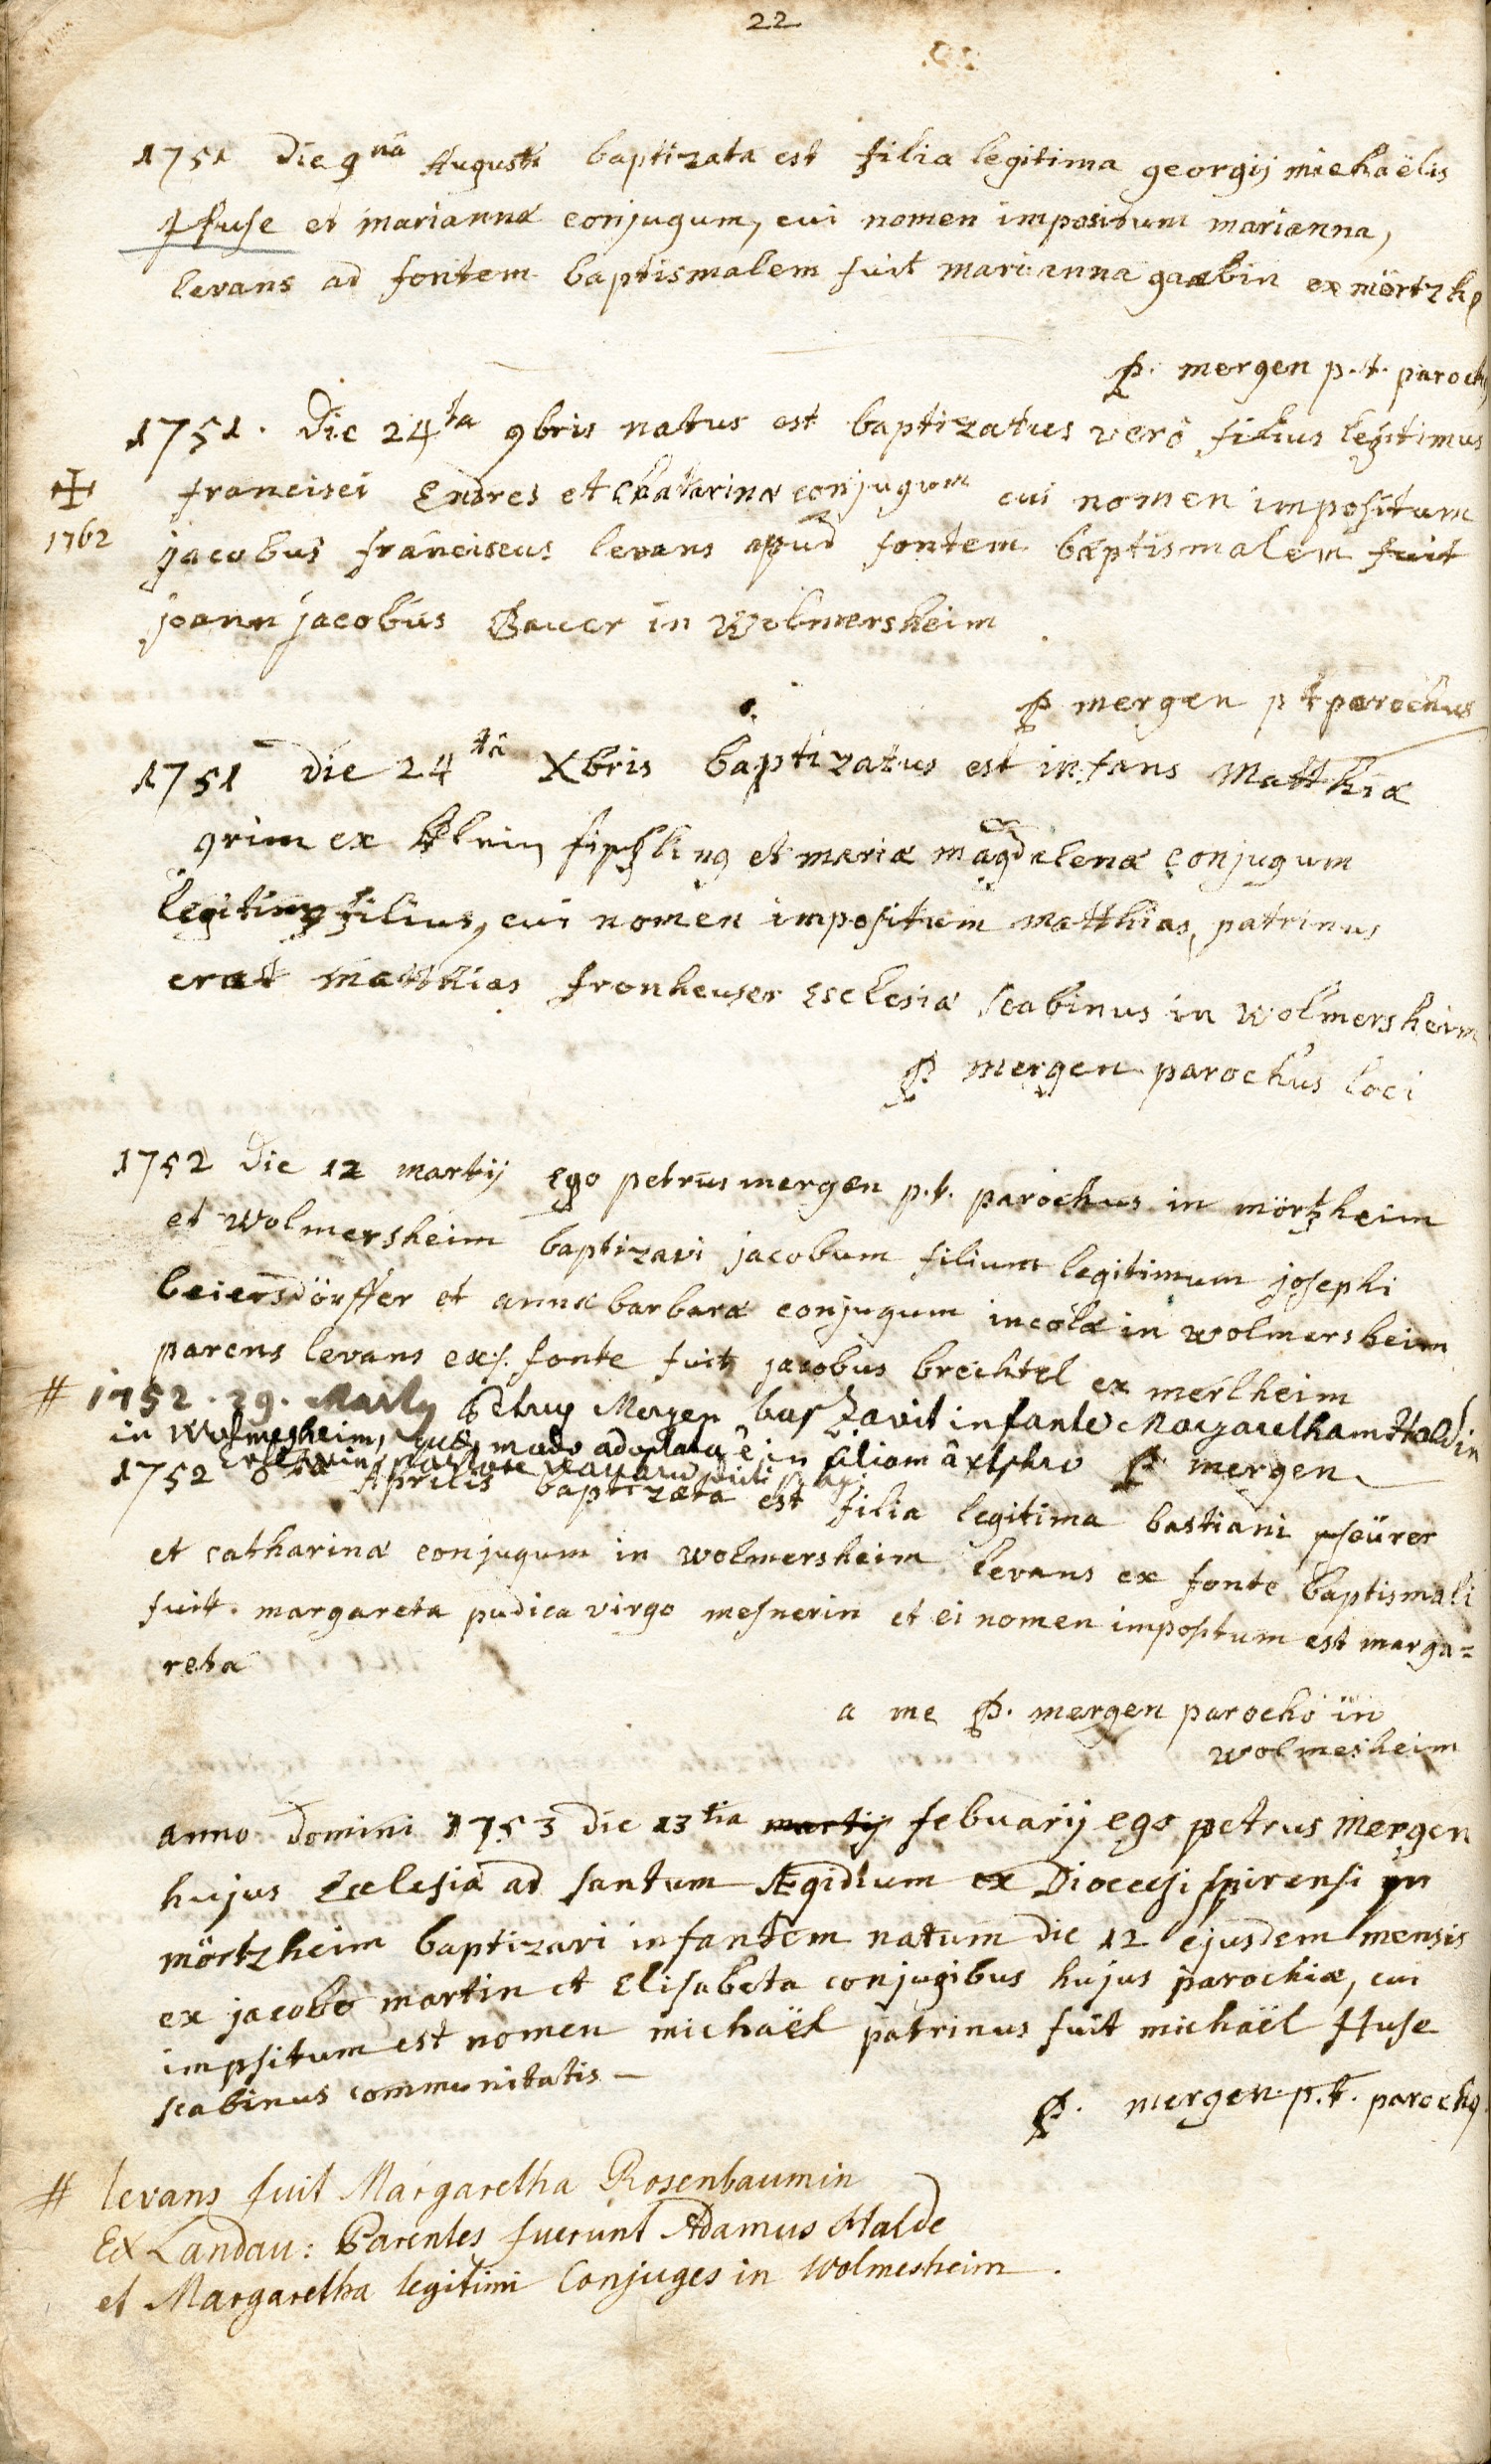 22
1751 die 9nâ Augusti baptizata est filia legitima georgij michaëlis
Husse et mariannæ conjugum, cui nomen impositum marianna,
levans ad fontem baptismalem fuit marianna gaabin ex mörtzh
P. mergen p.t. paroch
1751. Die 24ta 9bris natus est baptizatus verò filius legitimus
francisci Endres et Chatarinæ conjugum cui nomen impositum
✠
1762
jacobus franciscus levans apud fontem baptismalem fuit
joann jacobus Bauer in Wolmersheim
P mergen p t parochus
1751 die 24tâ Xbris baptizatus est infans Matthiæ
grim ex klein fischling et mariæ magdalenæ conjugum
legitimus filius, cui nomen impositum matthias, patrinus
erat matthias fronheuser Ecclesiæ scabinus in wolmersheim
P. mergen parochus loci
1752 die 12 martij Ego petrus mergen p.t. parochus in mörtzheim
et wolmersheim baptizavi jacobum filium legitimum josephi
beiersdörffer et annæ barbaræ conjugum incolæ in wolmersheim
parens levans ex s. fonte fuit jacobus brechtel ex merlheim
# 1752. 29. Martij Petrus Mergen baptizavit infante Margaretham Haldin
in Wolmesheim, quæ modo adoptata ê in filiam â P mergen
1752 Aprilis baptizata est filia legitima bastiani
et catharinæ conjugum in wolmersheim levans ex fonte baptismali
fuit. margareta pudica virgo mesnerin et ei nomen impositum est marga=
reta
a me P. mergen parocho in
wolmesheim
anno domini 1753 die 13tia martij febuarij ego petrus mergen
hujus Ecclesiæ ad santum Ægidium ex Dioecesi spirensi in
mörtzheim baptizavi infantem natum die 12 ejusdem mensis
ex jacobo martin et Elisabeta conjugibus hujus parochiæ, cui
impsitum est nomen michaël patrinus fuit michaël Huse
scabinus communitatis —
P. mergen p.t. parochg
# levans fuit Margaretha Rosenbaumin
Ex Landau: Parentes fuerunt Adamus Halde
et Margaretha legitimi Conjuges in Wolmesheim.